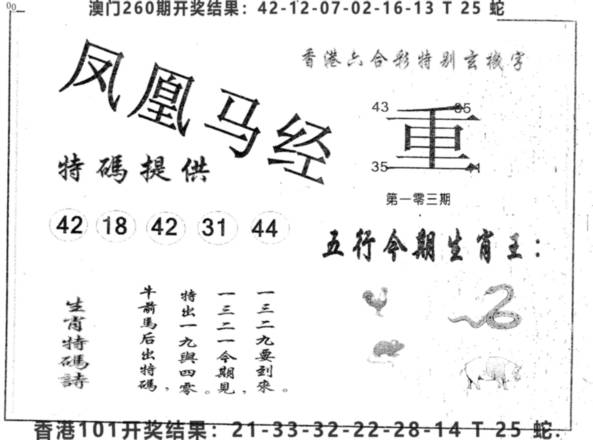 澳门260期开奖结果：42-12-07-02-16-13 T 25 蛇
香港六合彩特别玄機字
凤凰马经
43
重
35
第一零三期
特碼提供
42 18 42 31 44
五行今期生肖王：
一三二九要到來。
一三二一今期見，
特出一九與四零。
牛前馬后出特碼，
生肖特碼詩
香港101开奖结果：21-33-32-22-28-14 T 25 蛇.